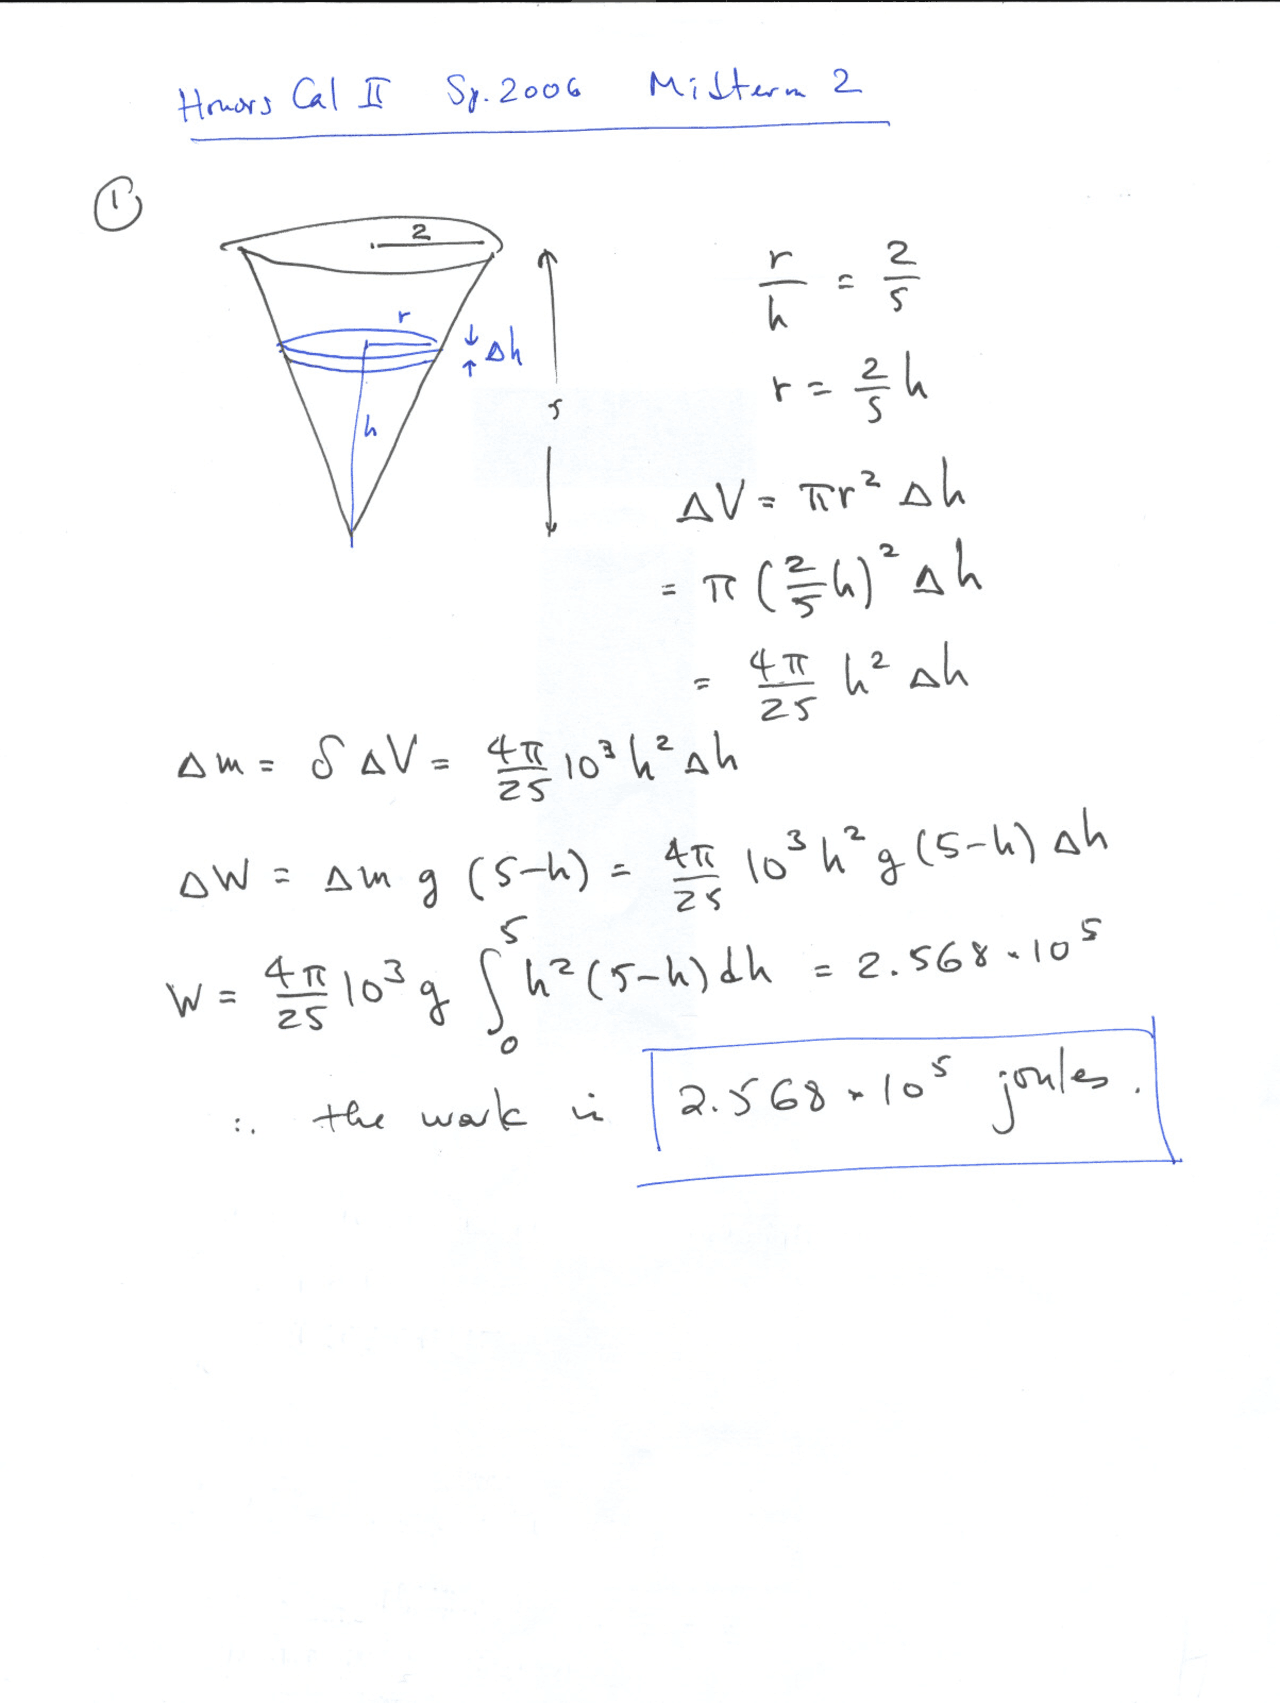 Honors Cal II Sp. 2006 Midterm 2
①
2
r
Δh
h
5
r/h = 2/5
r = 2/5 h
ΔV = πr² Δh
= π (2/5 h)² Δh
= 4π/25 h² Δh
Δm = δ ΔV = 4π/25 10³ h² Δh
ΔW = Δm g (5-h) = 4π/25 10³ h² g (5-h) Δh
W = 4π/25 10³ g ∫₀⁵ h² (5-h) dh = 2.568 × 10⁵
∴ the work is 2.568 × 10⁵ joules.